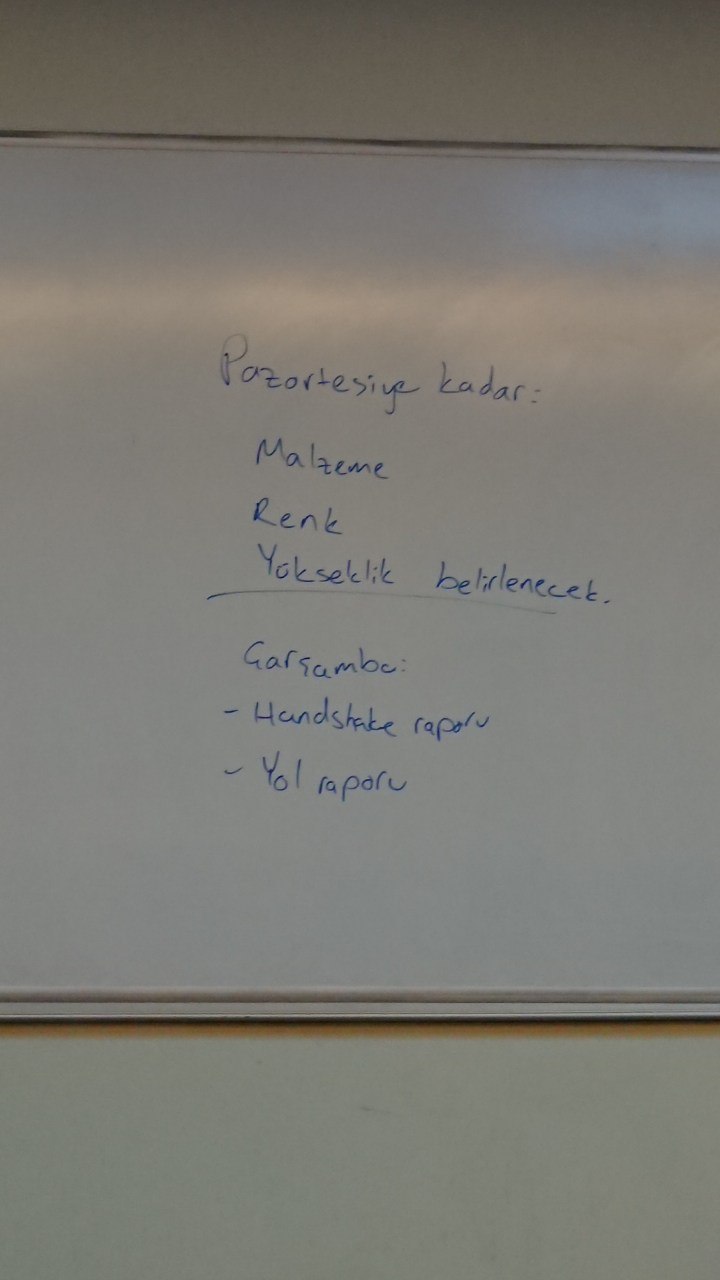 Pazartesiye kadar:
Malzeme
Renk
Yükseklik belirlenecek.
Çarşamba:
- Handshake raporu
- Yol raporu